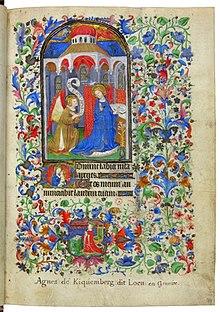 Domine labia mea
aperies.
Et os meum an
nunciabit laudem tuam
Agnes de Kiquemberg dit Loen en